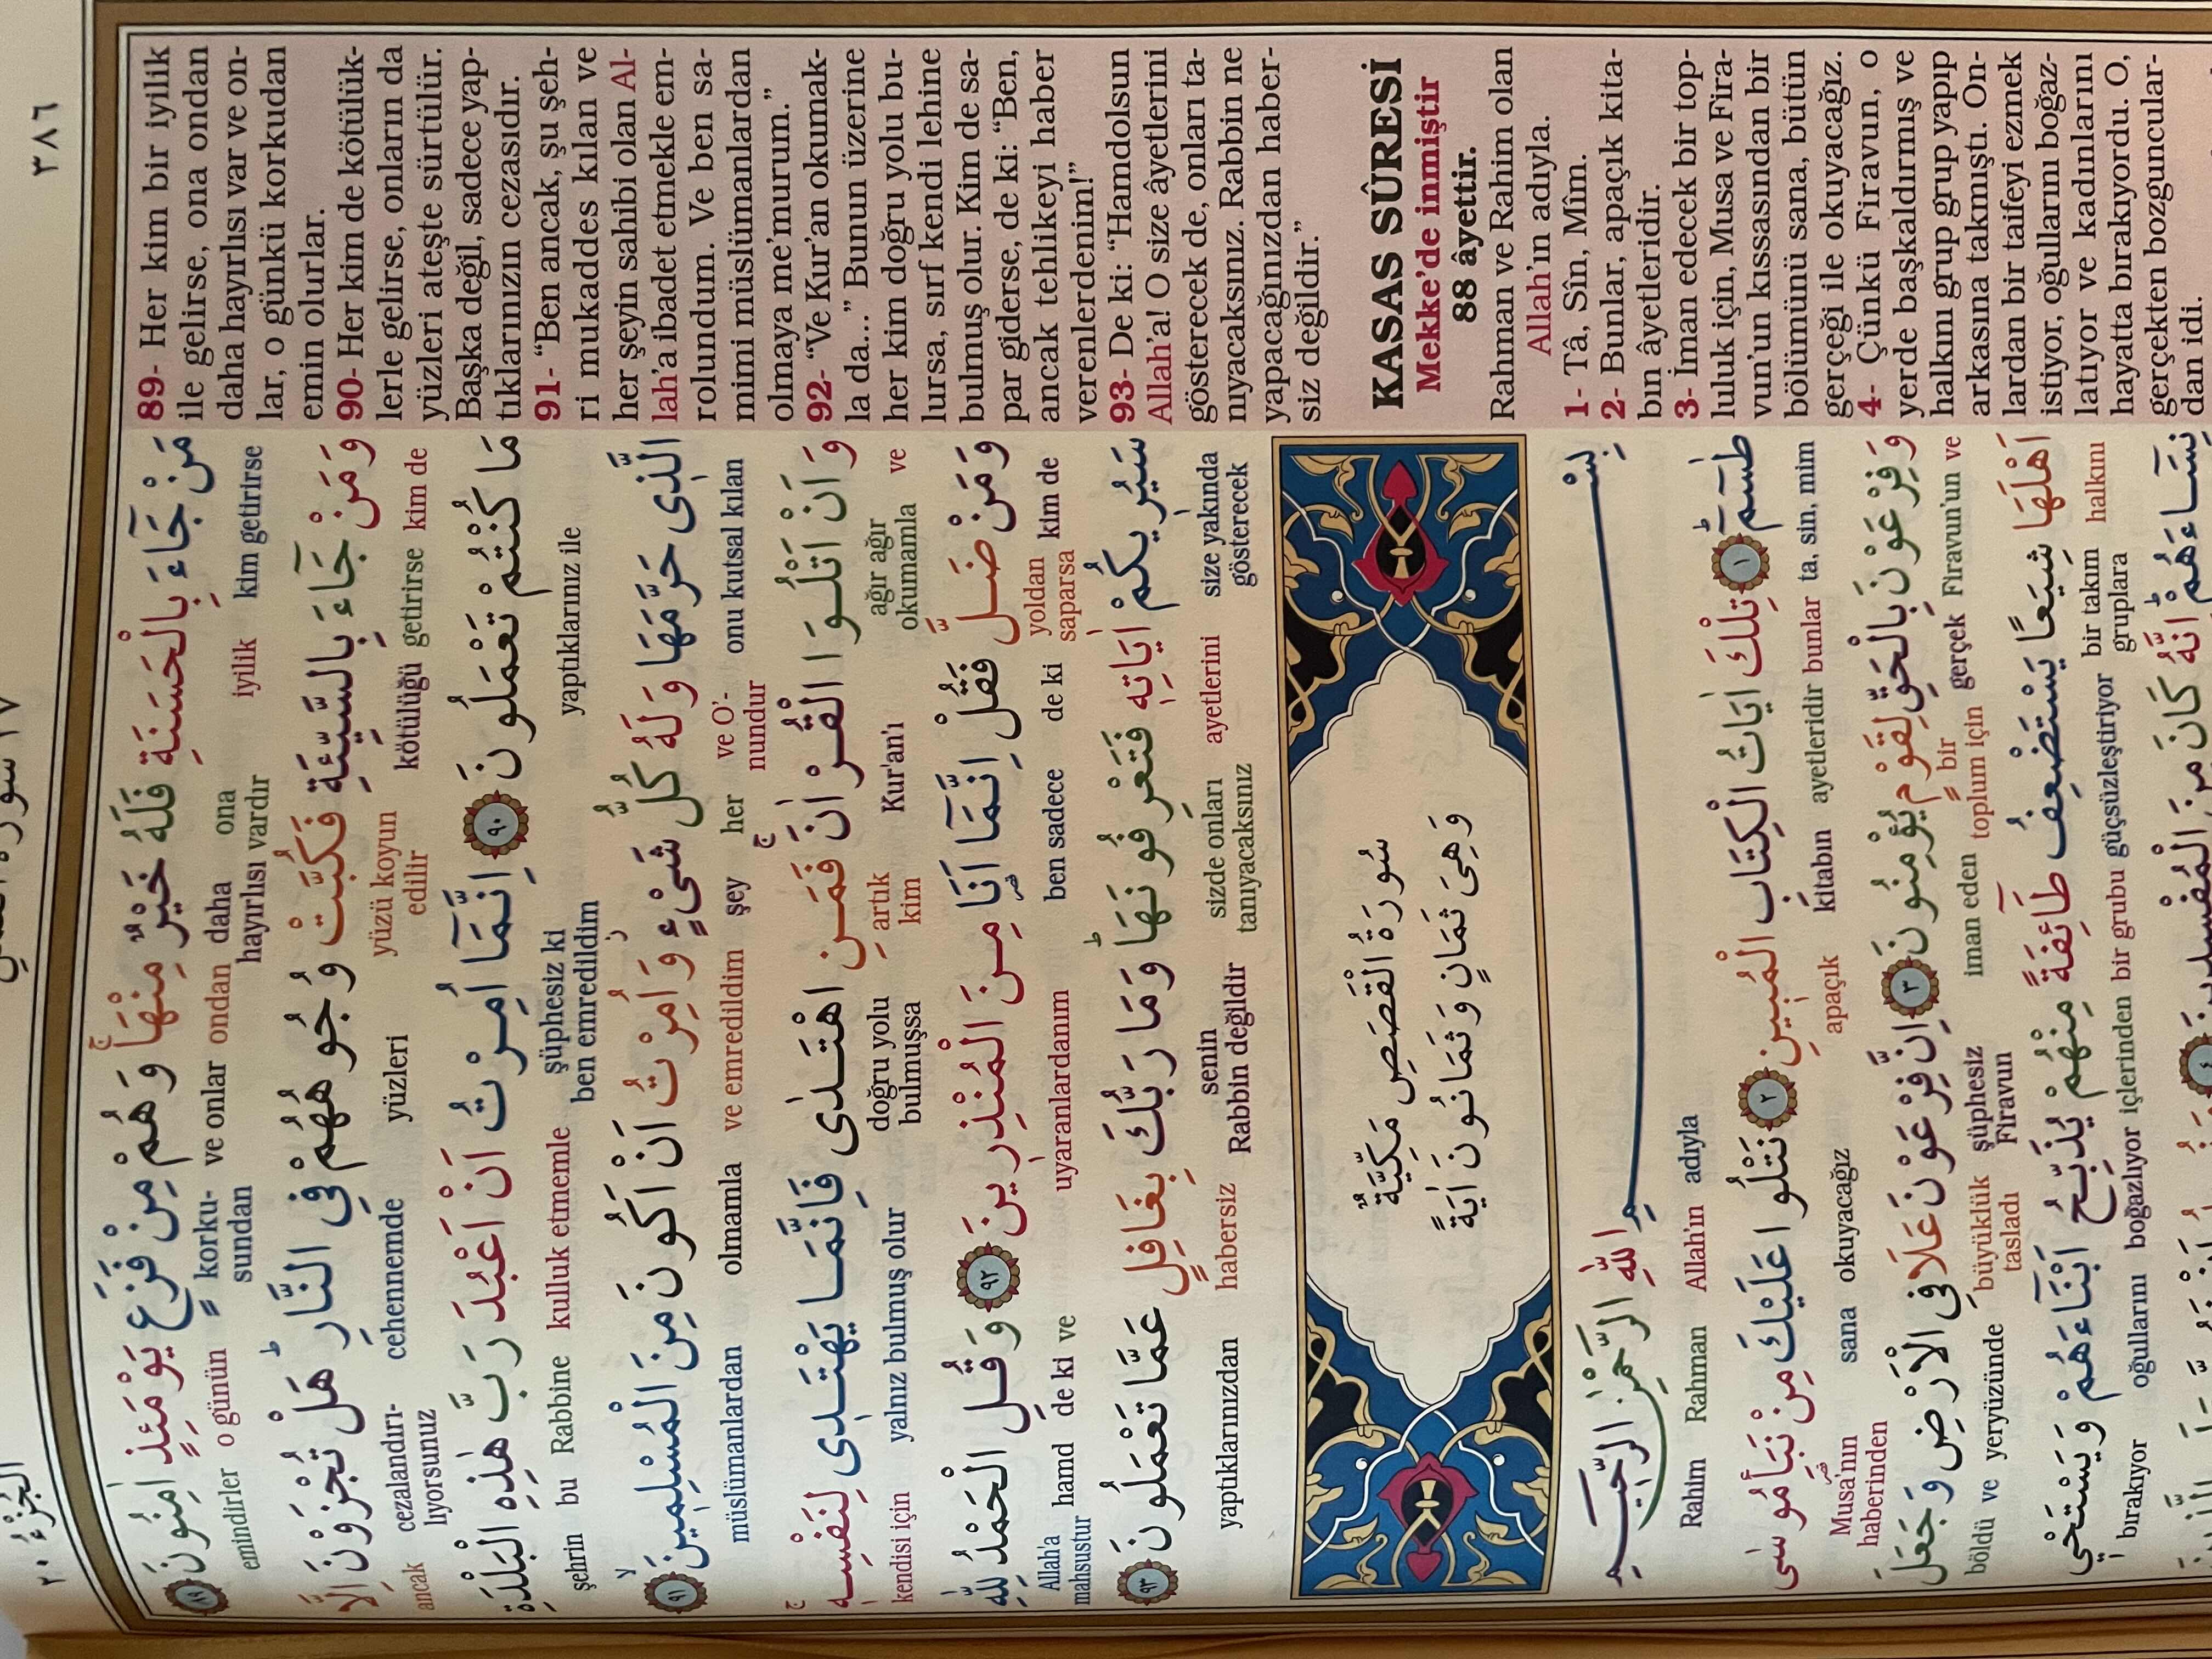 الجزء ٢٠
٣٨٦
مَنْ جَٓاءَ بِالْحَسَنَةِ فَلَهُ خَيْرٌ مِنْهَاۚ وَهُمْ مِنْ فَزَعٍ يَوْمَئِذٍ اٰمِنُونَ ﴿٨٩﴾
kim getirirse iyilik ona daha hayırlısı vardır ondan ve onlar korkusundan o günün emindirler
وَمَنْ جَٓاءَ بِالسَّيِّئَةِ فَكُبَّتْ وُجُوهُهُمْ فِى النَّارِۜ هَلْ تُجْزَوْنَ اِلَّا
kim de getirirse kötülüğü yüzü koyun edilir yüzleri cehennemde cezalandırılıyorsunuz ancak
مَا كُنْتُمْ تَعْمَلُونَ ﴿٩٠﴾ اِنَّمَٓا اُمِرْتُ اَنْ اَعْبُدَ رَبَّ هٰذِهِ الْبَلْدَةِ
yaptıklarınız ile şüphesiz ki ben emredildim kulluk etmemle Rabbine bu şehrin
الَّذِى حَرَّمَهَا وَلَهُ كُلُّ شَىْءٍۘ وَاُمِرْتُ اَنْ اَكُونَ مِنَ الْمُسْلِمِينَۙ ﴿٩١﴾
onu kutsal kılan ve O'nundur her şey ve emredildim olmamla müslümanlardan
وَاَنْ اَتْلُوَا الْقُرْاٰنَۚ فَمَنِ اهْتَدٰى فَاِنَّمَا يَهْتَدٖى لِنَفْسِهٖۚ
ve ağır ağır okumamla Kur'an'ı artık kim doğru yolu bulmuşsa yalnız bulmuş olur kendisi için
وَمَنْ ضَلَّ فَقُلْ اِنَّمَٓا اَنَا مِنَ الْمُنْذِرٖينَ ﴿٩٢﴾ وَقُلِ الْحَمْدُ لِلّٰهِ
kim de yoldan saparsa de ki ben sadece uyaranlardanım ve de ki hamd Allah'a mahsustur
سَيُرٖيكُمْ اٰيَاتِهٖ فَتَعْرِفُونَهَاۜ وَمَا رَبُّكَ بِغَافِلٍ عَمَّا تَعْمَلُونَ ﴿٩٣﴾
size yakında gösterecek ayetlerini sizde onları tanıyacaksınız senin Rabbin değildir habersiz yaptıklarınızdan
سُورَةُ الْقَصَصِ مَكِّيَّةٌ
وَهِىَ ثَمَانٍ وَثَمَانُونَ اٰيَةً
بِسْــــــمِ اللّٰهِ الرَّحْمٰنِ الرَّحٖيمِ
Allah'ın adıyla Rahman Rahim
طٰسٓمٓۜ ﴿١﴾ تِلْكَ اٰيَاتُ الْكِتَابِ الْمُبٖينِ ﴿٢﴾ نَتْلُوا عَلَيْكَ مِنْ نَبَاِ مُوسٰى
ta, sin, mim bunlar ayetleridir kitabın apaçık okuyacağız sana Musa'nın haberinden
وَفِرْعَوْنَ بِالْحَقِّ لِقَوْمٍ يُؤْمِنُونَ ﴿٣﴾ اِنَّ فِرْعَوْنَ عَلَا فِى الْاَرْضِ وَجَعَلَ
Firavun'un ve gerçek bir toplum için iman eden şüphesiz Firavun büyüklük tasladı yeryüzünde ve böldü
اَهْلَهَا شِيَعًا يَسْتَضْعِفُ طَٓائِفَةً مِنْهُمْ يُذَبِّحُ اَبْنَٓاءَهُمْ وَيَسْتَحْيٖ
halkını bir takım gruplara güçsüzleştiriyor bir grubu içlerinden boğazlıyor oğullarını bırakıyor
نِسَٓاءَهُمْۜ اِنَّهُ كَانَ مِنَ الْمُفْسِدٖينَ ﴿٤﴾
89- Her kim bir iyilik
ile gelirse, ona ondan
daha hayırlısı var ve on-
lar, o günkü korkudan
emin olurlar.
90- Her kim de kötülük-
lerle gelirse, onların da
yüzleri ateşte sürtülür.
Başka değil, sadece yap-
tıklarınızın cezasıdır.
91- “Ben ancak, şu şeh-
ri mukaddes kılan ve
her şeyin sahibi olan Al-
lah’a ibadet etmekle em-
rolundum. Ve ben sa-
mimi müslümanlardan
olmaya me’murum.”
92- “Ve Kur’an okumak-
la da...” Bunun üzerine
her kim doğru yolu bu-
lursa, sırf kendi lehine
bulmuş olur. Kim de sa-
par giderse, de ki: “Ben,
ancak tehlikeyi haber
verenlerdenim!”
93- De ki: “Hamdolsun
Allah’a! O size âyetlerini
gösterecek de, onları ta-
nıyacaksınız. Rabbin ne
yapacağınızdan haber-
siz değildir.”
KASAS SÛRESİ
Mekke’de inmiştir
88 âyettir.
Rahman ve Rahim olan
Allah’ın adıyla.
1- Tâ, Sîn, Mîm.
2- Bunlar, apaçık kita-
bın âyetleridir.
3- İman edecek bir top-
luluk için, Musa ve Fira-
vun’un kıssasından bir
bölümünü sana, bütün
gerçeği ile okuyacağız.
4- Çünkü Firavun, o
yerde başkaldırmış ve
halkını grup grup yapıp
arkasına takmıştı. On-
lardan bir taifeyi ezmek
istiyor, oğullarını boğaz-
latıyor ve kadınlarını
hayatta bırakıyordu. O,
gerçekten bozguncular-
dan idi.